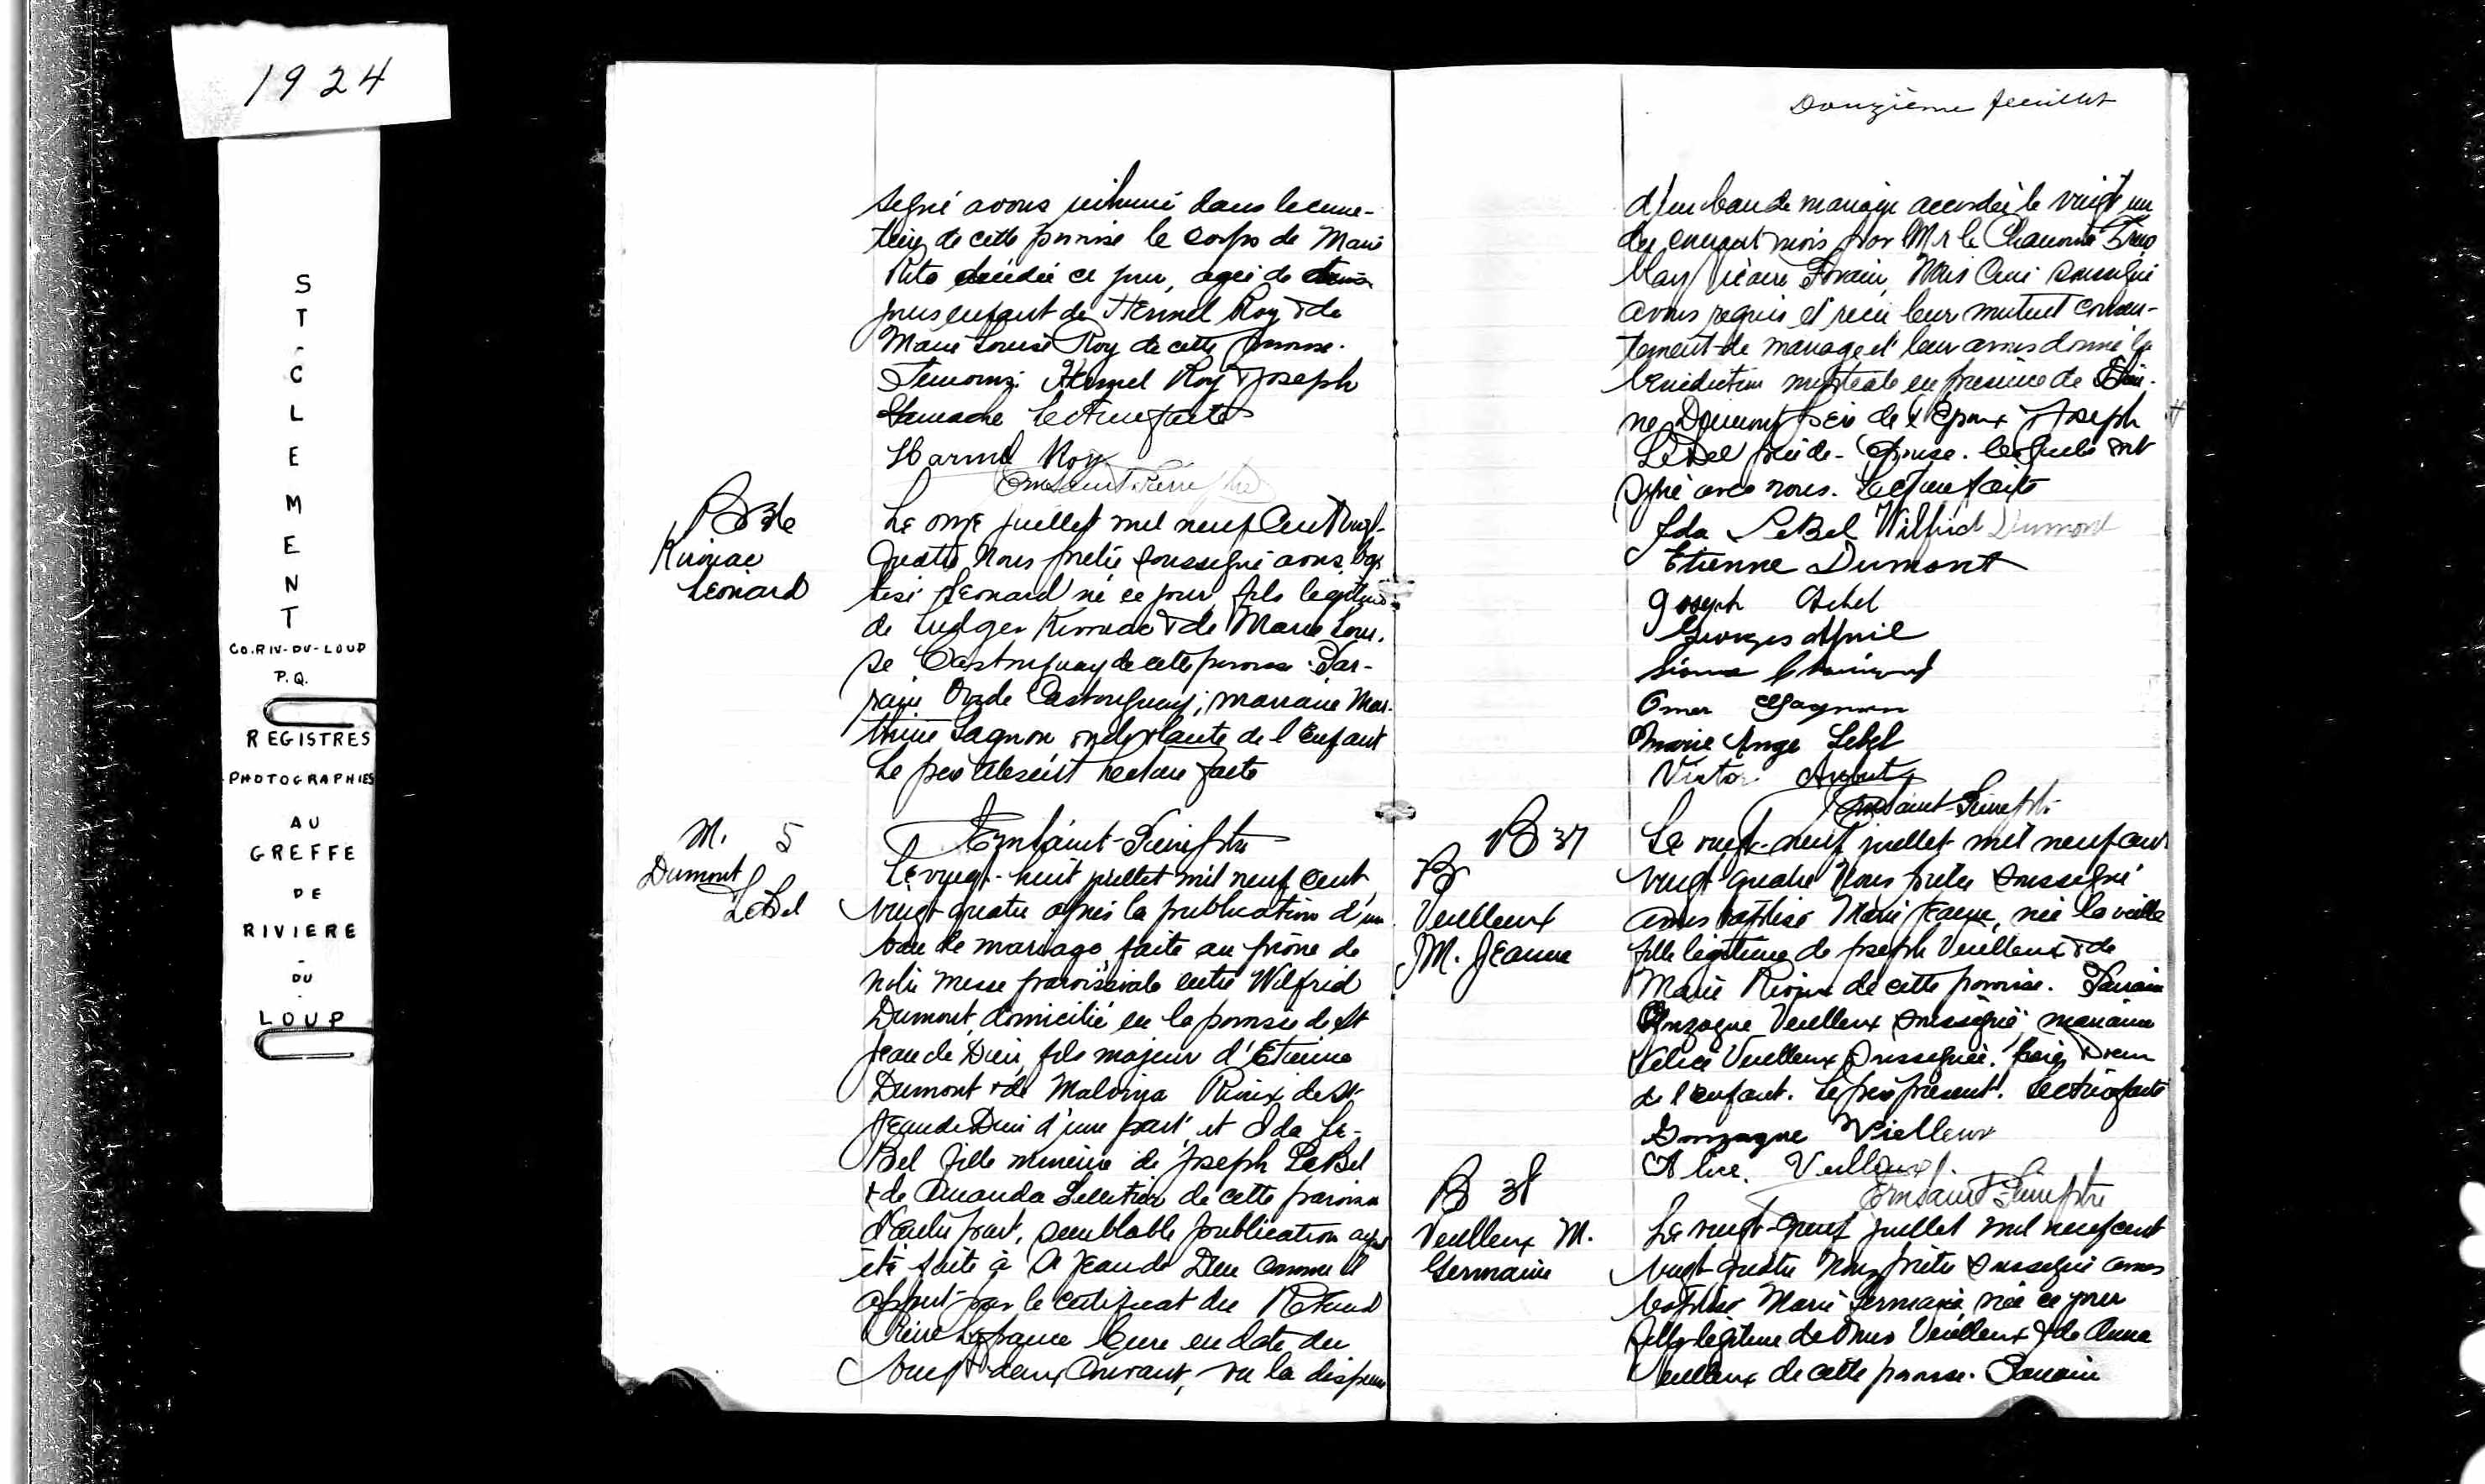 1924
ST-CLEMENT
CO.RIV-DU-LOUP
P.Q.
REGISTRES
PHOTOGRAPHIES
AU
GREFFE
DE
RIVIERE
-
DU
-
LOUP
signé avons inhumé dans le cime-
tière de cette paroisse le corps de Marie
Rita décédée ce jour, agée de
jours enfant de Hermel Roy & de
Marie Louise Roy de cette paroisse.
Temoins Hermel Roy & Joseph
Lecture faite
Harmel Roy
B 36
Kirouac
Léonard
Le onze juillet mil neuf cent vingt-
quatre Nous prêtre soussigné avons bap
tisé Léonard né ce jour fils légitime
de Ludger Kirouac & de Marie Loui-
se Castonguay de cette paroisse. Par-
rain Castonguay; marraine Mar-
Gagnon de l'Enfant
Le père absent Lecture faite
M. 5
Dumont
LeBel
Saint-Pierre ptre
Le vingt-huit juillet mil neuf cent
vingt quatre après la publication d'un
ban de mariage, faite au prône de
notre messe paroissiale entre Wilfrid
Dumont, domicilié en la paroisse de St
Jean de Dieu, fils majeur d'Etienne
Dumont & de Malvina Rioux de St-
Jean de Dieu d'une part et Ida Le-
Bel fille mineure de Joseph LeBel
& de Amanda Pelletier de cette paroisse
d'autre part, semblable publication ayant
été faite à St Jean de Dieu comme il
appert par le certificat du Révérend
Lefrance Curé en date du
vingt-deux courant, vu la dispense
Douzième feuillet
d'un ban de mariage accordée le vingt un
du courant mois par Mr le Chanoine
Vicaire Forain, Nous Curé soussigné
avons requis et reçu leur mutuel consen-
tement de mariage et leur avons donné la
bénédiction nuptiale en présence de Etien-
ne Dumont père de l'Epoux & Joseph
LeBel père de l'Epouse. lesquels ont
signé avec nous. Lecture faite
Ida LeBel Wilfrid Dumont
Etienne Dumont
Joseph Lebel
Georges April
Omer Gagnon
Marie Ange Lebel
Victor
Saint-Pierre ptr.
B 37
B
Veilleux
M. Jeanne
Le vingt-neuf juillet mil neuf cent
vingt-quatre Nous prêtre soussigné
avons baptisé Marie Jeanne, née la veille
fille légitime de Joseph Veilleux & de
Marie Rioux de cette paroisse. Parrain
Gonzague Veilleux soussigné; marraine
Alice Veilleux soussignée. frère & sœur
de l'enfant. Le père présent. Lecture faite
Gonzague Vielleux
Alice. Veilleux
Saint-Pierre ptre
B 38
Veilleux M.
Germaine
Le vingt-neuf juillet mil neuf cent
vingt-quatre Nous prêtre soussigné avons
baptisé Marie Germaine, née ce jour
fille légitime de Veilleux & de Anna
Veilleux de cette paroisse. Parrain